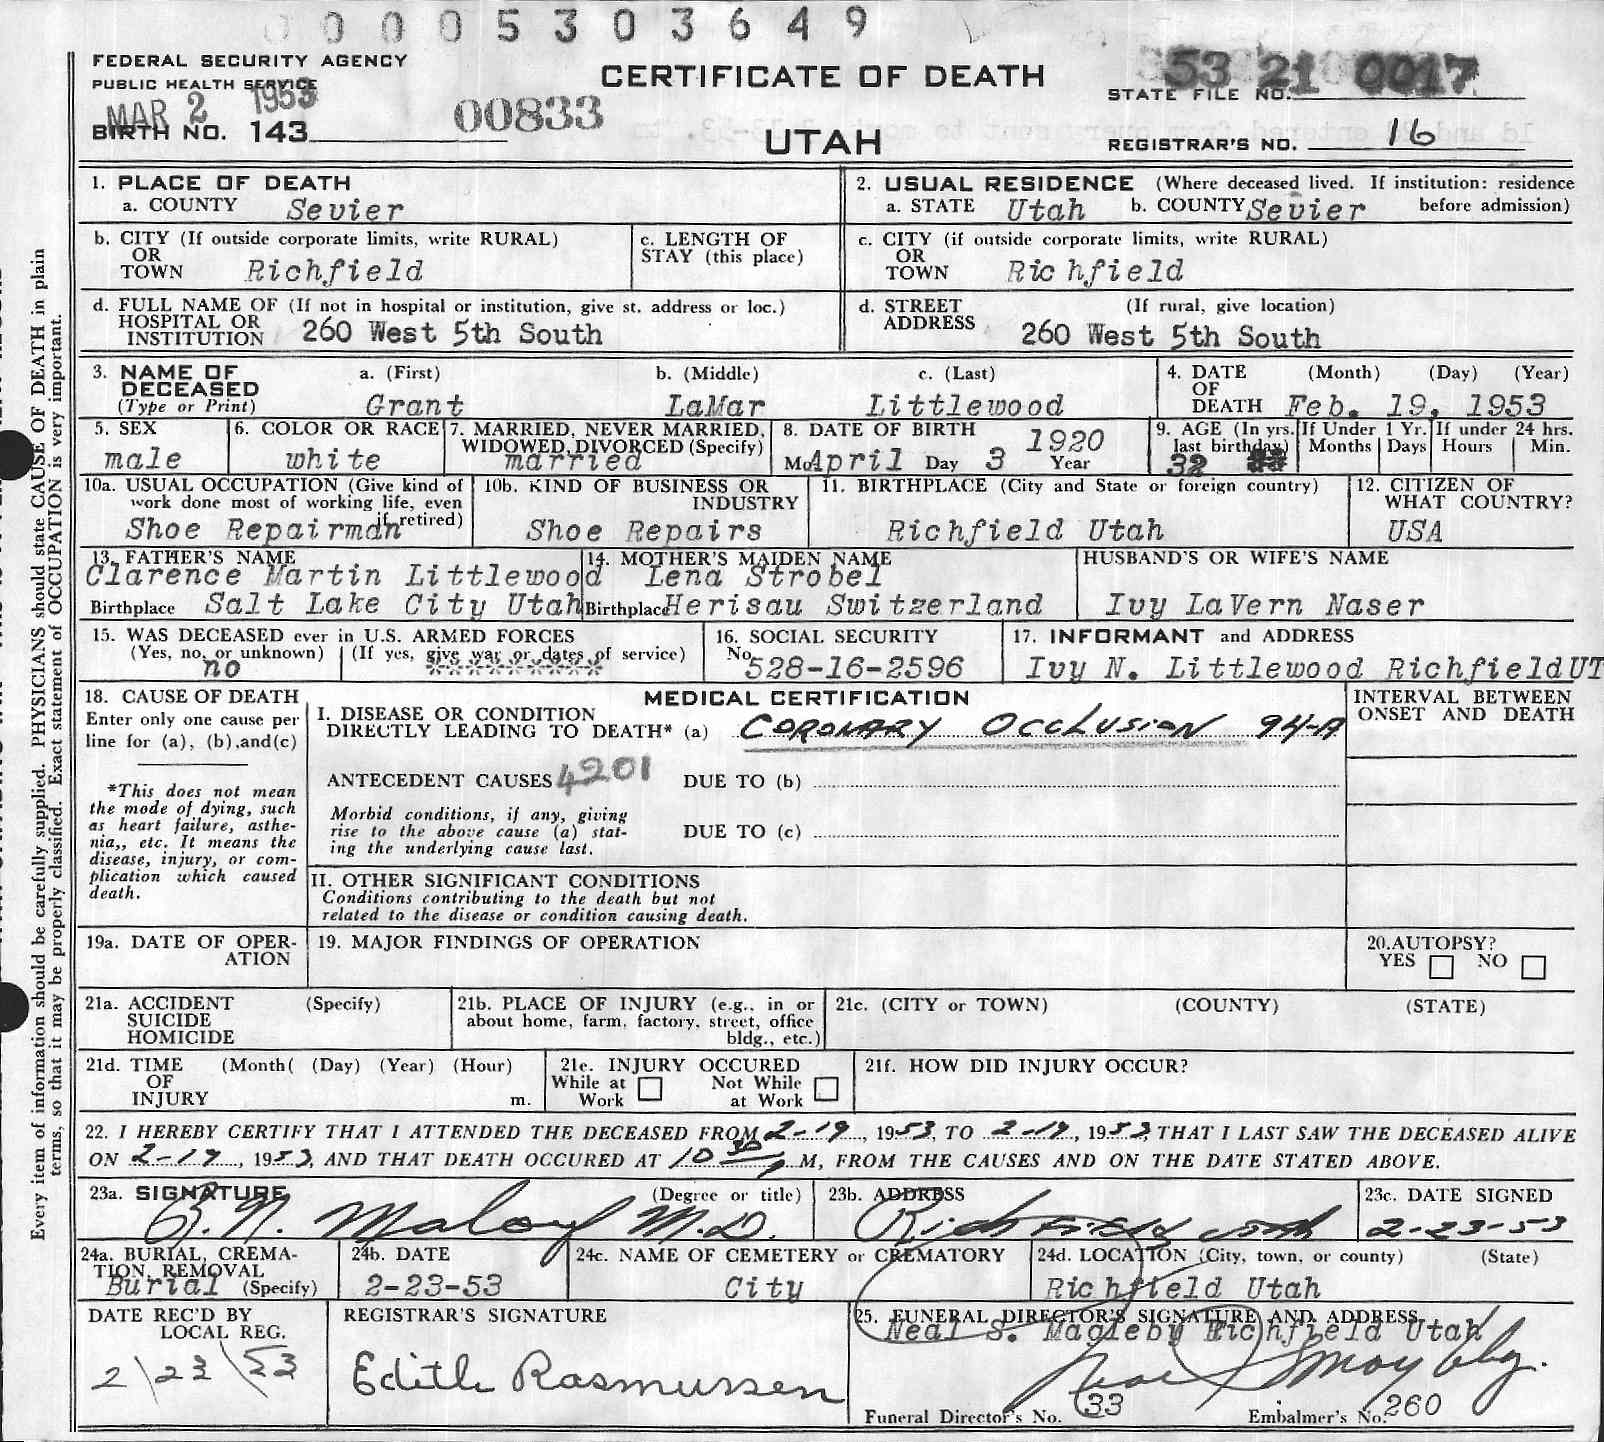 0 0 0 5 3 0 3 6 4 9
FEDERAL SECURITY AGENCY
PUBLIC HEALTH SERVICE
MAR 2 1953
BIRTH NO. 143
00833
CERTIFICATE OF DEATH
UTAH
53 21 0017
STATE FILE NO.
REGISTRAR'S NO. 16
1. PLACE OF DEATH
a. COUNTY Sevier
2. USUAL RESIDENCE (Where deceased lived. If institution: residence before admission)
a. STATE Utah b. COUNTY Sevier
b. CITY (If outside corporate limits, write RURAL)
OR
TOWN Richfield
c. LENGTH OF
STAY (this place)
c. CITY (if outside corporate limits, write RURAL)
OR
TOWN Richfield
d. FULL NAME OF (If not in hospital or institution, give st. address or loc.)
HOSPITAL OR
INSTITUTION 260 West 5th South
d. STREET (If rural, give location)
ADDRESS 260 West 5th South
3. NAME OF DECEASED
(Type or Print)
a. (First) b. (Middle) c. (Last)
Grant LaMar Littlewood
4. DATE OF DEATH (Month) (Day) (Year)
Feb. 19, 1953
5. SEX
male
6. COLOR OR RACE
white
7. MARRIED, NEVER MARRIED,
WIDOWED, DIVORCED (Specify)
married
8. DATE OF BIRTH
Mo April Day 3 1920 Year
9. AGE (In yrs. last birthday)
32
If Under 1 Yr.
Months Days
If under 24 hrs.
Hours Min.
10a. USUAL OCCUPATION (Give kind of
work done most of working life, even
if retired)
Shoe Repairman
10b. KIND OF BUSINESS OR
INDUSTRY
Shoe Repairs
11. BIRTHPLACE (City and State or foreign country)
Richfield Utah
12. CITIZEN OF
WHAT COUNTRY?
USA
13. FATHER'S NAME
Clarence Martin Littlewood
Birthplace Salt Lake City Utah
14. MOTHER'S MAIDEN NAME
Lena Strobel
Birthplace Herisau Switzerland
HUSBAND'S OR WIFE'S NAME
Ivy LaVern Naser
15. WAS DECEASED ever in U.S. ARMED FORCES
(Yes, no, or unknown) (If yes, give war or dates of service)
no
16. SOCIAL SECURITY
No. 528-16-2596
17. INFORMANT and ADDRESS
Ivy N. Littlewood Richfield UT
18. CAUSE OF DEATH
Enter only one cause per
line for (a), (b), and (c)
*This does not mean
the mode of dying, such
as heart failure, asthe-
nia,, etc. It means the
disease, injury, or com-
plication which caused
death.
MEDICAL CERTIFICATION
I. DISEASE OR CONDITION
DIRECTLY LEADING TO DEATH* (a) CORONARY OCCLUSION 94-A
ANTECEDENT CAUSES 4201 DUE TO (b)
Morbid conditions, if any, giving
rise to the above cause (a) stat-
ing the underlying cause last.
DUE TO (c)
II. OTHER SIGNIFICANT CONDITIONS
Conditions contributing to the death but not
related to the disease or condition causing death.
INTERVAL BETWEEN
ONSET AND DEATH
19a. DATE OF OPER-
ATION
19. MAJOR FINDINGS OF OPERATION
20. AUTOPSY?
YES NO
21a. ACCIDENT (Specify)
SUICIDE
HOMICIDE
21b. PLACE OF INJURY (e.g., in or
about home, farm, factory, street, office
bldg., etc.)
21c. (CITY or TOWN) (COUNTY) (STATE)
21d. TIME (Month( (Day) (Year) (Hour)
OF
INJURY m.
21e. INJURY OCCURED
While at Work Not While at Work
21f. HOW DID INJURY OCCUR?
22. I HEREBY CERTIFY THAT I ATTENDED THE DECEASED FROM 2-19, 1953, TO 2-19, 1953, THAT I LAST SAW THE DECEASED ALIVE
ON 2-19, 1953, AND THAT DEATH OCCURED AT 10 30 P M, FROM THE CAUSES AND ON THE DATE STATED ABOVE.
23a. SIGNATURE (Degree or title)
Maloy M.D.
23b. ADDRESS
Richfield Utah
23c. DATE SIGNED
2-23-53
24a. BURIAL, CREMA-
TION, REMOVAL
Burial (Specify)
24b. DATE
2-23-53
24c. NAME OF CEMETERY or CREMATORY
City
24d. LOCATION (City, town, or county) (State)
Richfield Utah
DATE REC'D BY
LOCAL REG.
2/23/53
REGISTRAR'S SIGNATURE
Edith Rasmussen
25. FUNERAL DIRECTOR'S SIGNATURE AND ADDRESS
Neal S. Magleby Richfield Utah
Funeral Director's No. 33 Embalmer's No. 260
Every item of information should be carefully supplied. PHYSICIANS should state CAUSE OF DEATH in plain
terms, so that it may be properly classified. Exact statement of OCCUPATION is very important.